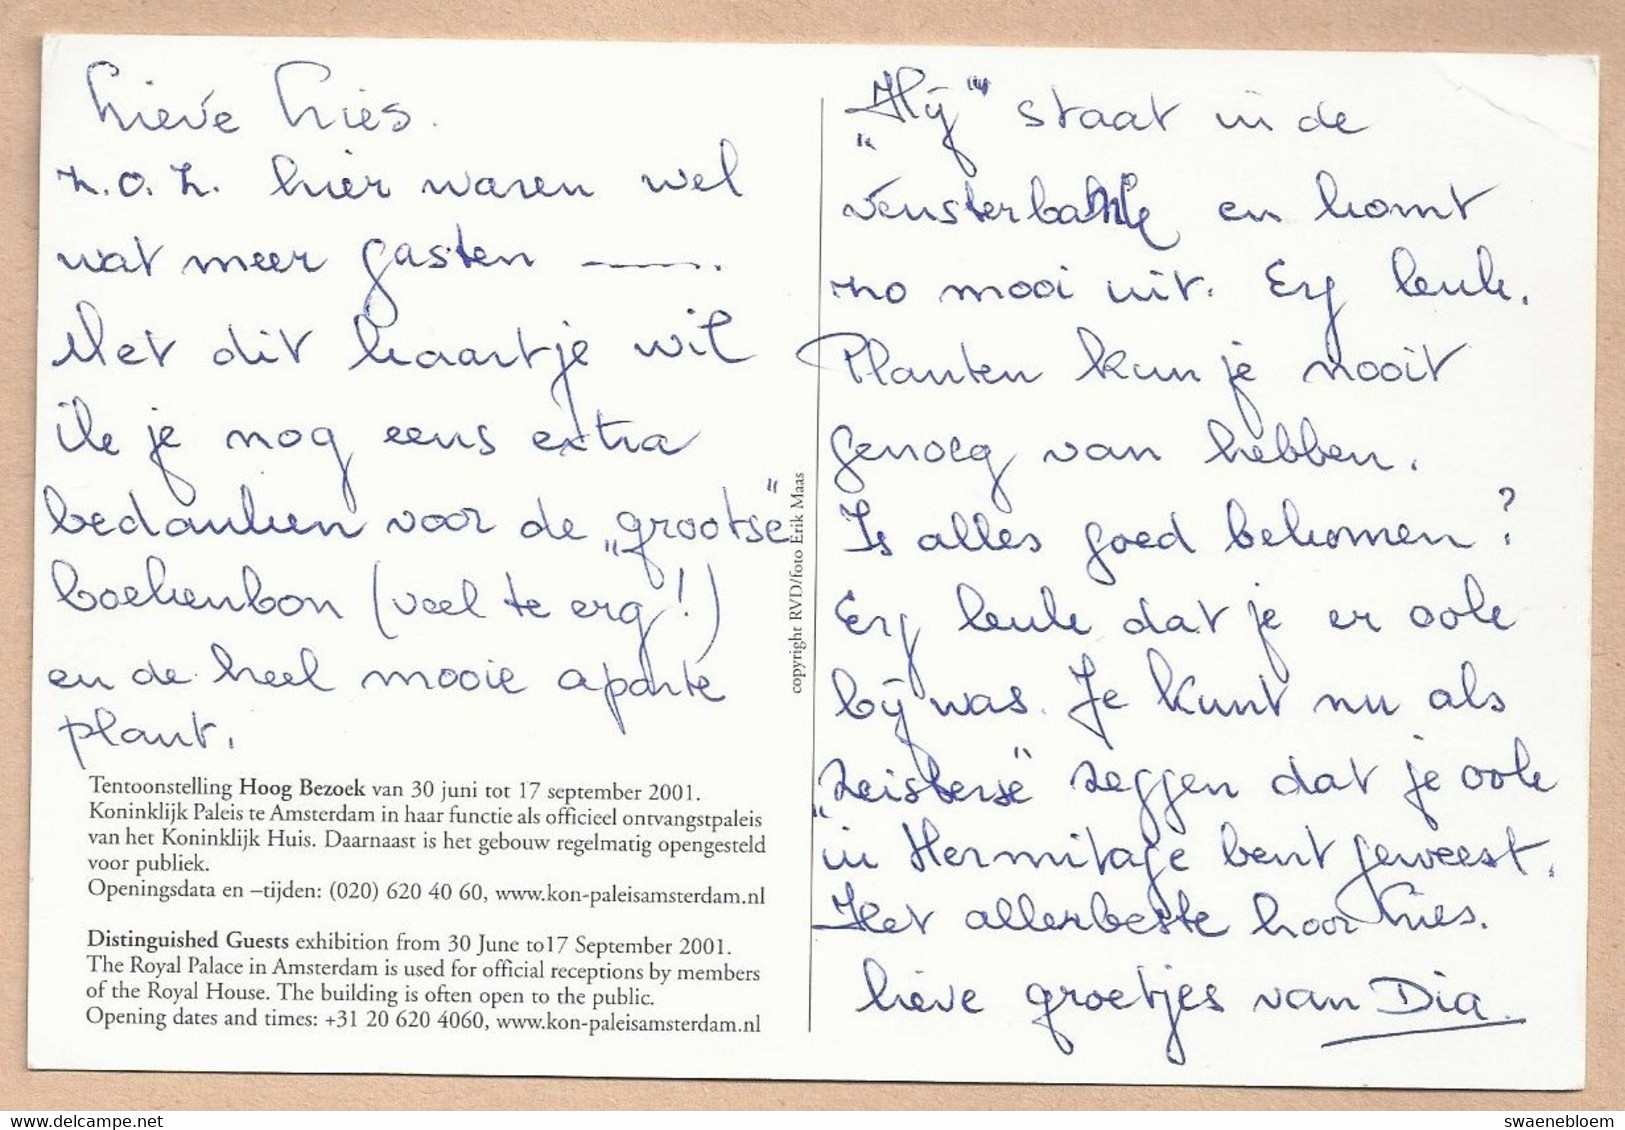 Lieve Lies.
z.o.z. hier waren wel
wat meer gasten ——.
Met dit kaartje wil
ik je nog eens extra
bedanken voor de „grootse"
boekenbon (veel te erg!)
en de heel mooie aparte
plant.
Tentoonstelling Hoog Bezoek van 30 juni tot 17 september 2001.
Koninklijk Paleis te Amsterdam in haar functie als officieel ontvangstpaleis
van het Koninklijk Huis. Daarnaast is het gebouw regelmatig opengesteld
voor publiek.
Openingsdata en –tijden: (020) 620 40 60, www.kon-paleisamsterdam.nl
Distinguished Guests exhibition from 30 June to17 September 2001.
The Royal Palace in Amsterdam is used for official receptions by members
of the Royal House. The building is often open to the public.
Opening dates and times: +31 20 620 4060, www.kon-paleisamsterdam.nl
copyright RVD/foto Erik Maas
„Hij" staat in de
vensterbank en komt
zo mooi uit. Erg leuk.
Planten kun je nooit
genoeg van hebben.
Is alles goed bekomen?
Erg leuk dat je er ook
bij was. Je kunt nu als
„Zeisterse" zeggen dat je ook
in Hermitage bent geweest.
Het allerbeste hoor Lies.
lieve groetjes van Dia.
swaenebloem